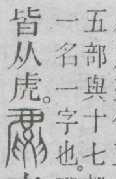 五部與十七
一名一字也。
皆从虎。